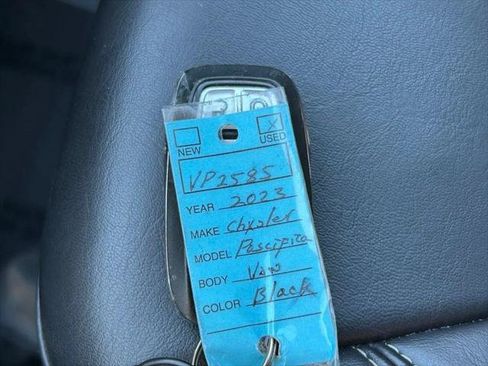 X
NEW USED
VP2585
YEAR 2023
MAKE Chysler
MODEL Pascifica
BODY Van
COLOR Black